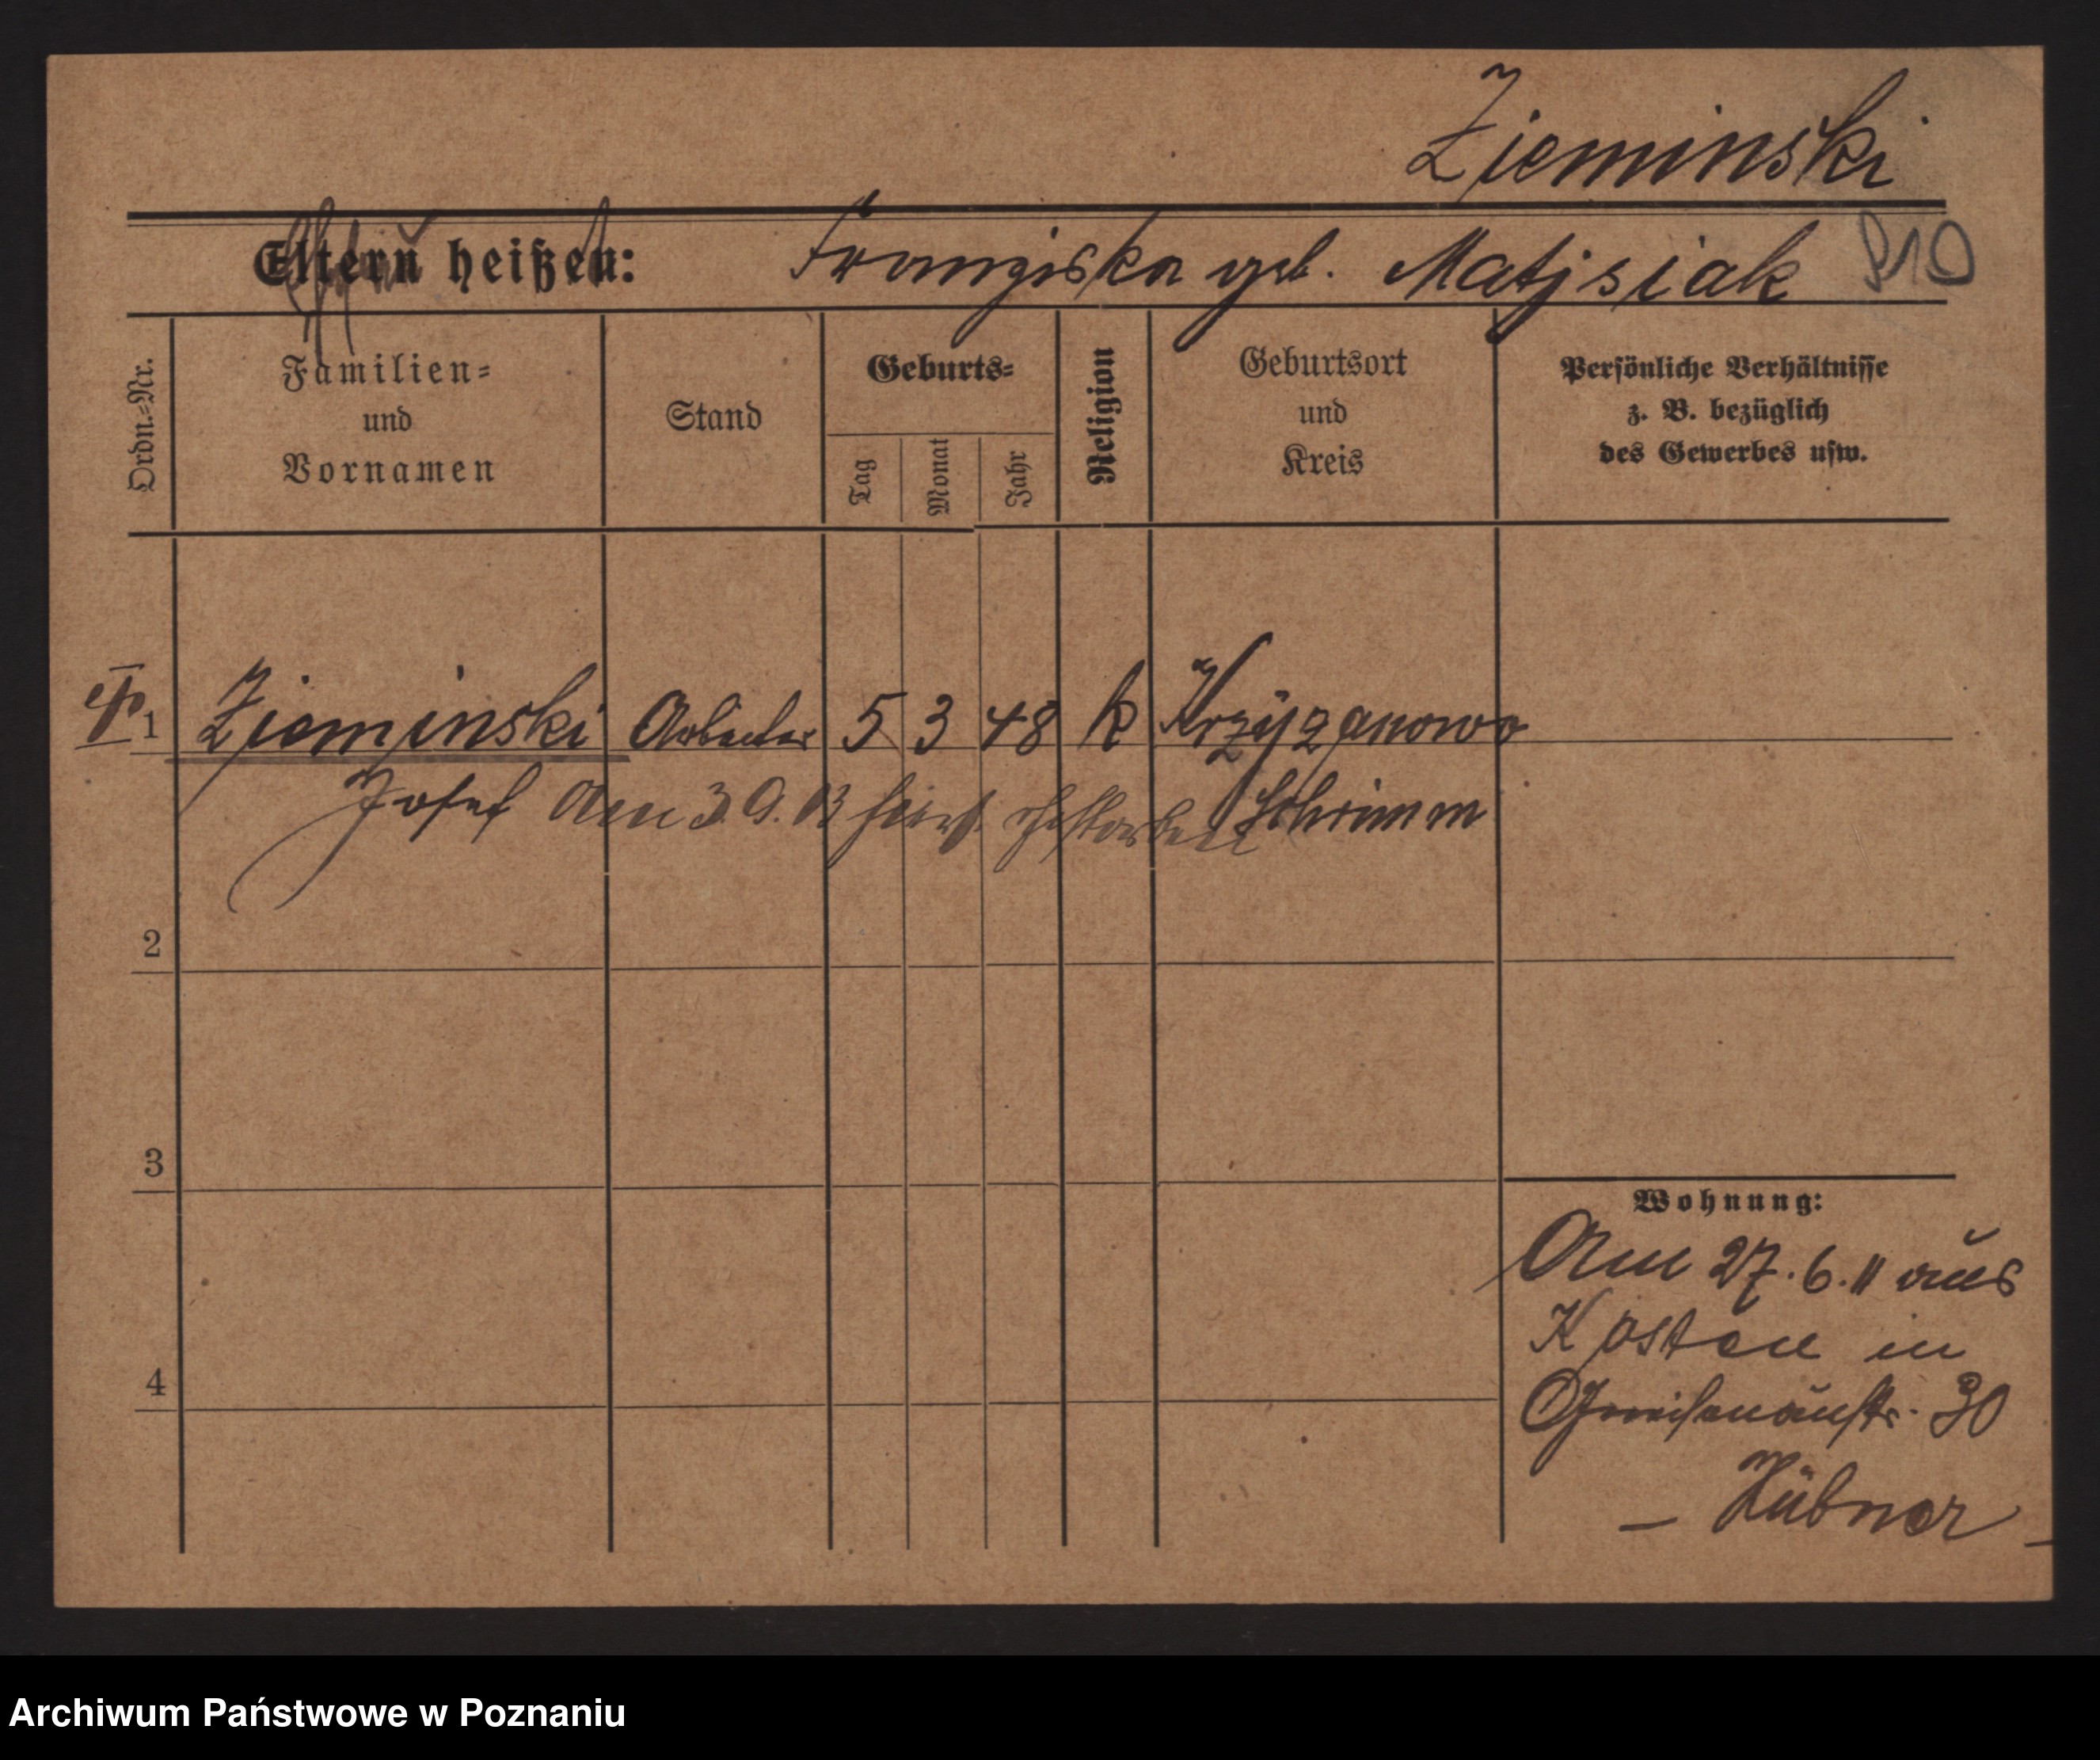 Zieminski
Eltern heißen: Franziska geb. Matjsiak
Ordn.-Nr.
Familien-
und
Vornamen
Stand
Geburts-
Tag
Monat
Jahr
Religion
Geburtsort
und
Kreis
Persönliche Verhältnisse
z. B. bezüglich
des Gewerbes usw.
1 Zieminski Arbeiter 5 3 48 k Krzyzanowo
Josef Am 3.9.13 hier gestorben Schrimm
2
3
4
Wohnung:
Am 27.6.11 aus
Kosten in
Gneisenaustr. 30
– Hübner –
Archiwum Państwowe w Poznaniu